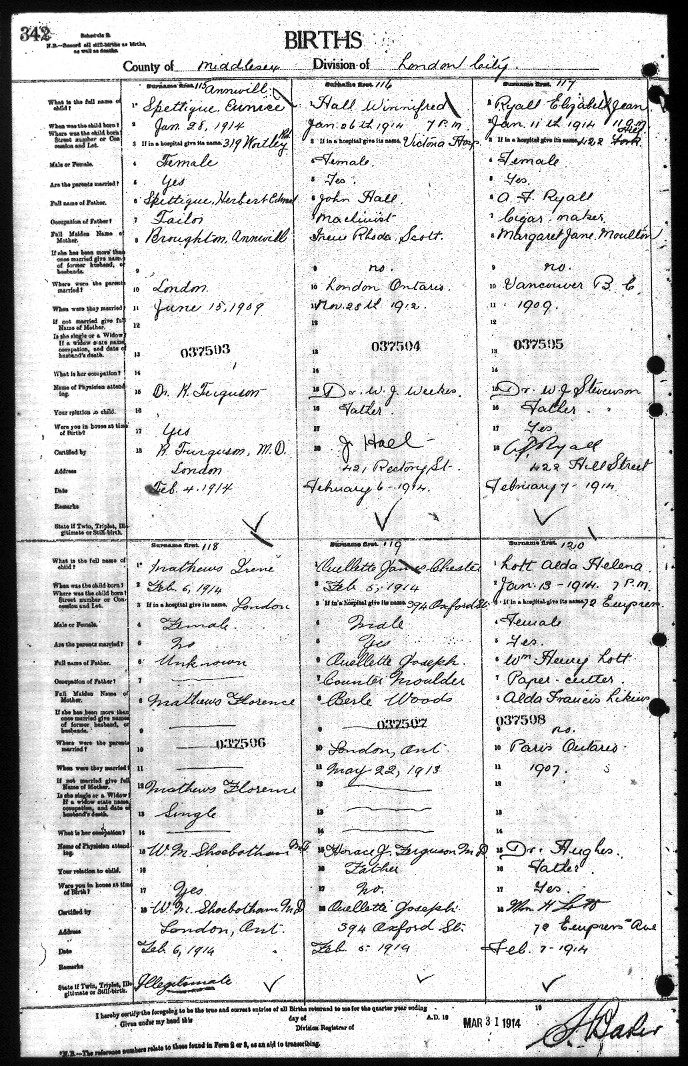 342
Schedule B.
N.B.—Record all still-births as births, as well as deaths.
BIRTHS
County of Middlesex Division of London City
Surname first. 115 Surname first. 116 Surname first. 117
Annwill
What is the full name of child? 1 Spettigue, Eunice Hall Winnifred Ryall Elizabeth Jean
When was the child born? 2 Jan. 28, 1914 Jan. 06th 1914 7 P.M. Jan. 11th 1914 11 a.m.
Where was the child born? Street number or Concession and Lot. 3 If in a hospital give its name. 319 Wortley Rd If in a hospital give its name. Victoria Hosp. If in a hospital give its name. 422 Hill York
Male or Female. 4 Female Female. Female
Are the parents married? 5 Yes Yes. Yes.
Full name of Father. 6 Spettigue, Herbert Edward John Hall. A. F. Ryall
Occupation of Father? 7 Tailor Machinist Cigar maker
Full Maiden Name of Mother. 8 Broughton, Annwill Irene Rhoda Scott. Margaret Jane Moulton
If she has been more than once married give name of former husband, or husbands. 9 no. no.
Where were the parents married? 10 London. London Ontario. Vancouver B. C.
When were they married? 11 June 15, 1909 Nov. 28th 1912 1909.
If not married give full Name of Mother. 12
Is she single or a Widow? If a widow state name, occupation, and date of husband's death. 13 037503 037504 037505
What is her occupation? 14
Name of Physician attending. 15 Dr. K. Ferguson Dr. W. J. Weekes. Dr. W. J. Stevenson
Your relation to child. 16 Father Father.
Were you in house at time of Birth? 17 Yes Yes
Certified by 18 K. Ferguson, M.D. J. Hall A. F. Ryall
Address London 421 Rectory St. 422 Hill Street
Date Feb. 4. 1914 February 6 - 1914. February 7 - 1914
Remarks
State if Twin, Triplet, Illegitimate or Still-birth.
Surname first. 118 Surname first. 119 Surname first. 120
What is the full name of child? 1 Mathews Irene Ouellette James Chester Lott Alda Helena.
When was the child born? 2 Feb. 6, 1914 Feb. 5, 1914 Jan. 13 - 1914. 7 P.M.
Where was the child born? Street number or Concession and Lot. 3 If in a hospital give its name. London If in a hospital give its name. 394 Oxford St. If in a hospital give its name. 72 Empress
Male or Female. 4 Female Male Female
Are the parents married? 5 No Yes Yes.
Full name of Father. 6 Unknown Ouellette Joseph. Wm Henry Lott
Occupation of Father? 7 Counter Moulder Paper-cutter.
Full Maiden Name of Mother. 8 Mathews Florence Berle Woods Alda Francis
If she has been more than once married give names of former husband, or husbands. 9 037507 037508 no.
Where were the parents married? 10 037506 London, Ont Paris Ontario.
When were they married? 11 May 22, 1913 1907.
If not married give full Name of Mother. 12 Mathews Florence
Is she single or a Widow? If a widow state name, occupation, and date of husband's death. 13 Single
What is her occupation? 14
Name of Physician attending. 15 W. M. Shoebotham M.D. Horace J. Ferguson M.D. Dr. Hughes.
Your relation to child. 16 Father Father.
Were you in house at time of Birth? 17 Yes No. Yes.
Certified by 18 W. M. Shoebotham M.D Ouellette Joseph. Wm H Lott
Address London, Ont. 394 Oxford St. 72 Empress Ave
Date Feb. 6, 1914 Feb. 5. 1914 Feb. 7 - 1914
Remarks
State if Twin, Triplet, Illegitimate or Still-birth. Illegitimate
I hereby certify the foregoing to be the true and correct entries of all Births returned to me for the quarter year ending 19
Given under my hand this day of A.D. 19 MAR 31 1914
Division Registrar of
*N.B.—The reference numbers relate to those found in Form 2 or 3, as an aid to transcribing.